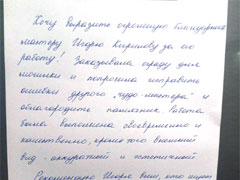 Хочу выразить огромную благодарность
мастеру Игорю Кириллову за его
работу! Заказывала ограду для
могилки и попросила исправить
ошибки другого "чудо-мастера" и
облагородить памятник. Работа
была выполнена своевременно и
качественно, кроме того внешний
вид - аккуратный и эстетичный
Рекомендую Игоря всем, кто ищет